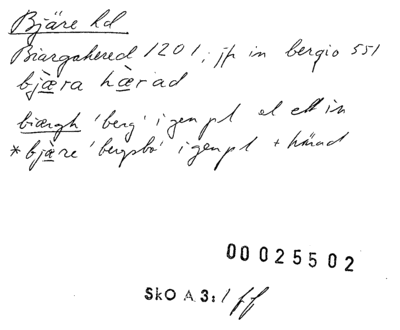 Bjäre hd
Biargahered 1201; jfr in bergio 551
bjæra hærad
biærgh 'berg' i gen pl el ett in
*bjære 'bergsbo' i gen pl + härad
00025502
SkO A 3:1 ff